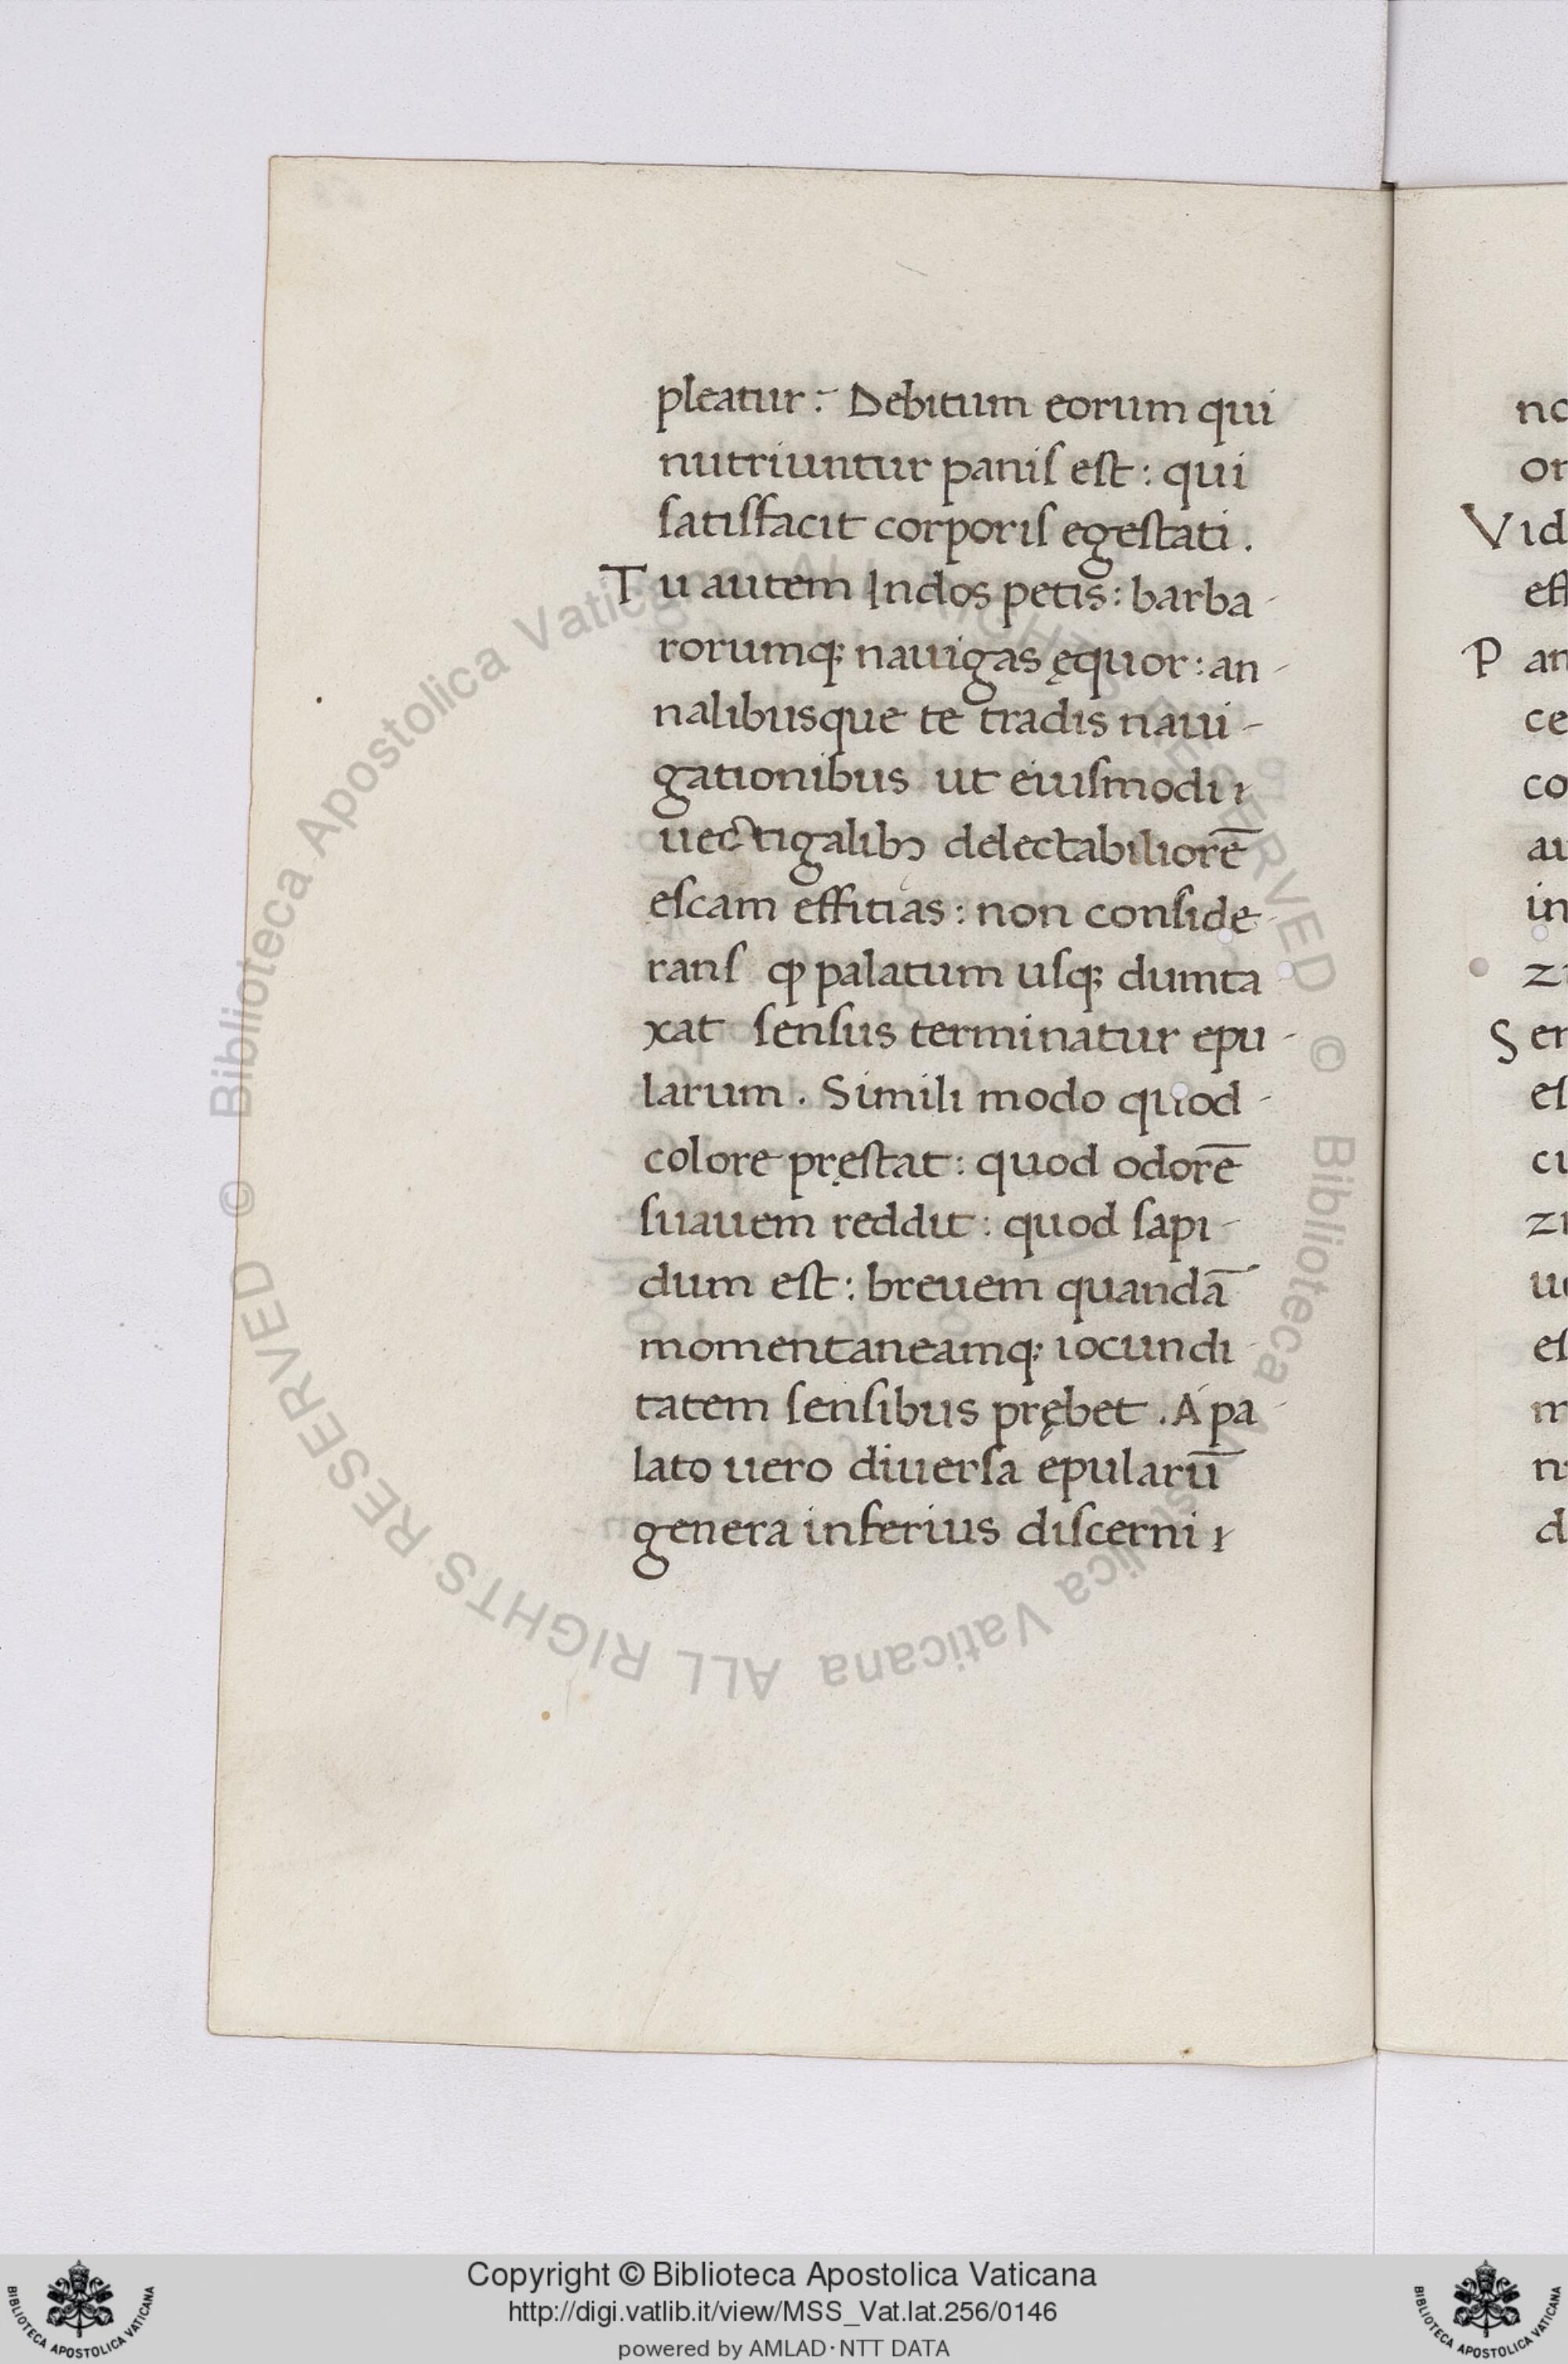 pleatur: Debitum eorum qui
nutriuntur paniſ eſt: qui
ſatiſfacit corporiſ egeſtati.
Tu autem Indos petis: barba-
rorumq; nauigas ęquor: an-
nalibusque te tradis naui-
gationibus ut eiuſmodi
uectigalibꝫ delectabiliorē
eſcam effitias: non conſide-
ranſ ꝙ palatum uſq; dumta-
xat ſenſus terminatur epu-
larum. Simili modo quod-
colore pręſtat: quod odorē
ſuauem reddit: quod ſapi-
dum eſt: breuem quandā
momentaneamq; iocundi-
tatem ſenſibus prębet. A pa-
lato uero diuerſa epularū
genera inferius diſcerni
no
or
Vid
eff
P an
ce
co
au
in
zi
S er
eſ
cu
zi
ue
eſ
m
n
d
© Biblioteca Apostolica Vaticana ALL RIGHTS RESERVED © Biblioteca Apostolica Vaticana ALL RIGHTS RESERVED
Copyright © Biblioteca Apostolica Vaticana
http://digi.vatlib.it/view/MSS_Vat.lat.256/0146
powered by AMLAD·NTT DATA
BIBLIOTECA APOSTOLICA VATICANA
BIBLIOTECA APOSTOLICA VATICANA